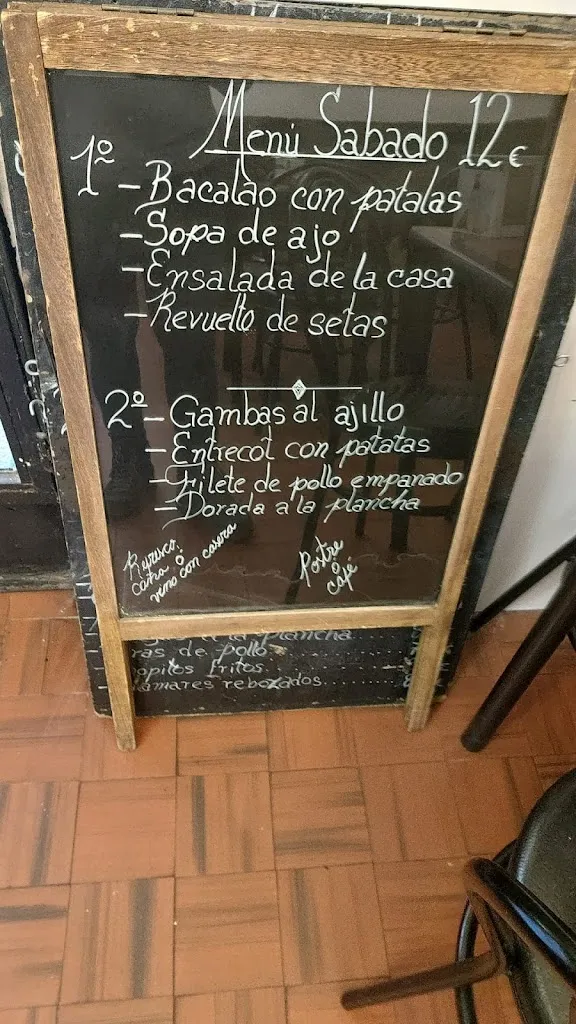 Menú Sabado 12€
1º - Bacalao con patatas
- Sopa de ajo
- Ensalada de la casa
- Revuelto de setas
2º - Gambas al ajillo
- Entrecot con patatas
- Filete de pollo empanado
- Dorada a la plancha
Refresco,
caña o
vino con casera
Postre
o
café
a la plancha
ras de pollo
opitos fritos
amares rebozados